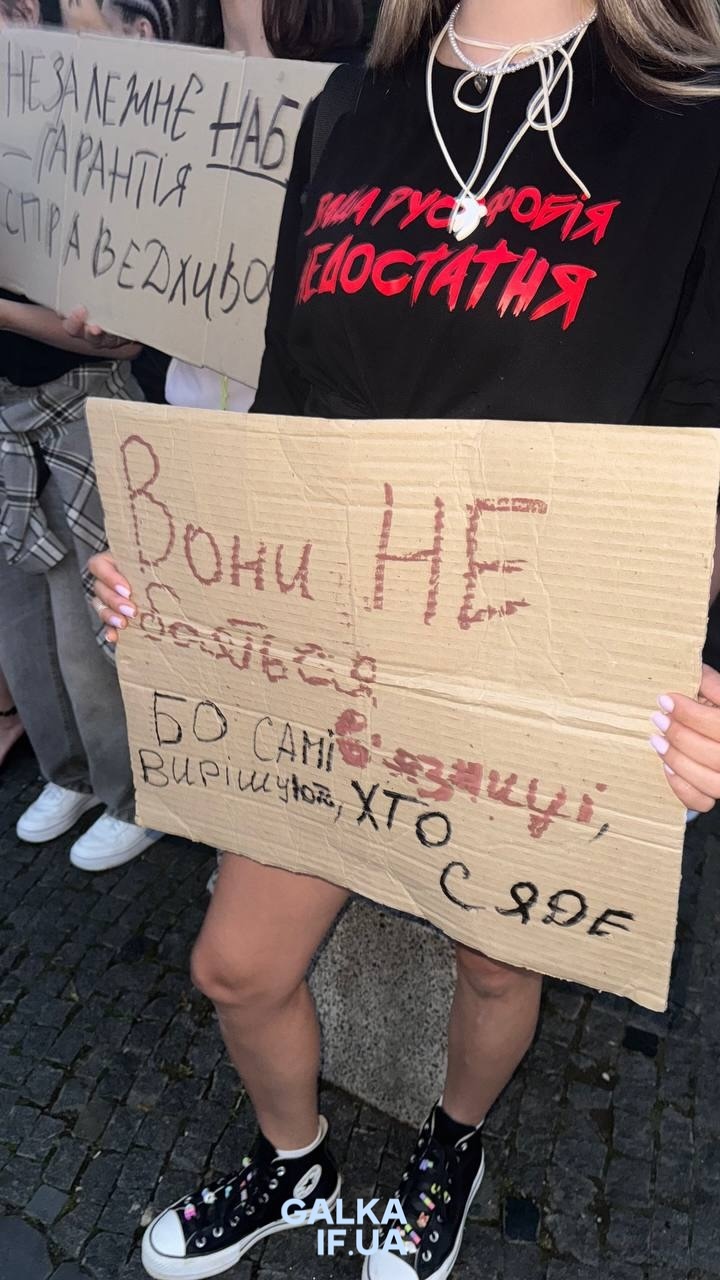 НЕЗАЛЕЖНЕ НАБ
– ГАРАНТІЯ
СПРАВЕДЛИВО
ВАША РУСОФОБІЯ
НЕДОСТАТНЯ
Вони НЕ
бояться
в'язниці,
БО САМІ
ВИРІШУЮТЬ, ХТО
СЯДЕ
GALKA
IF.UA